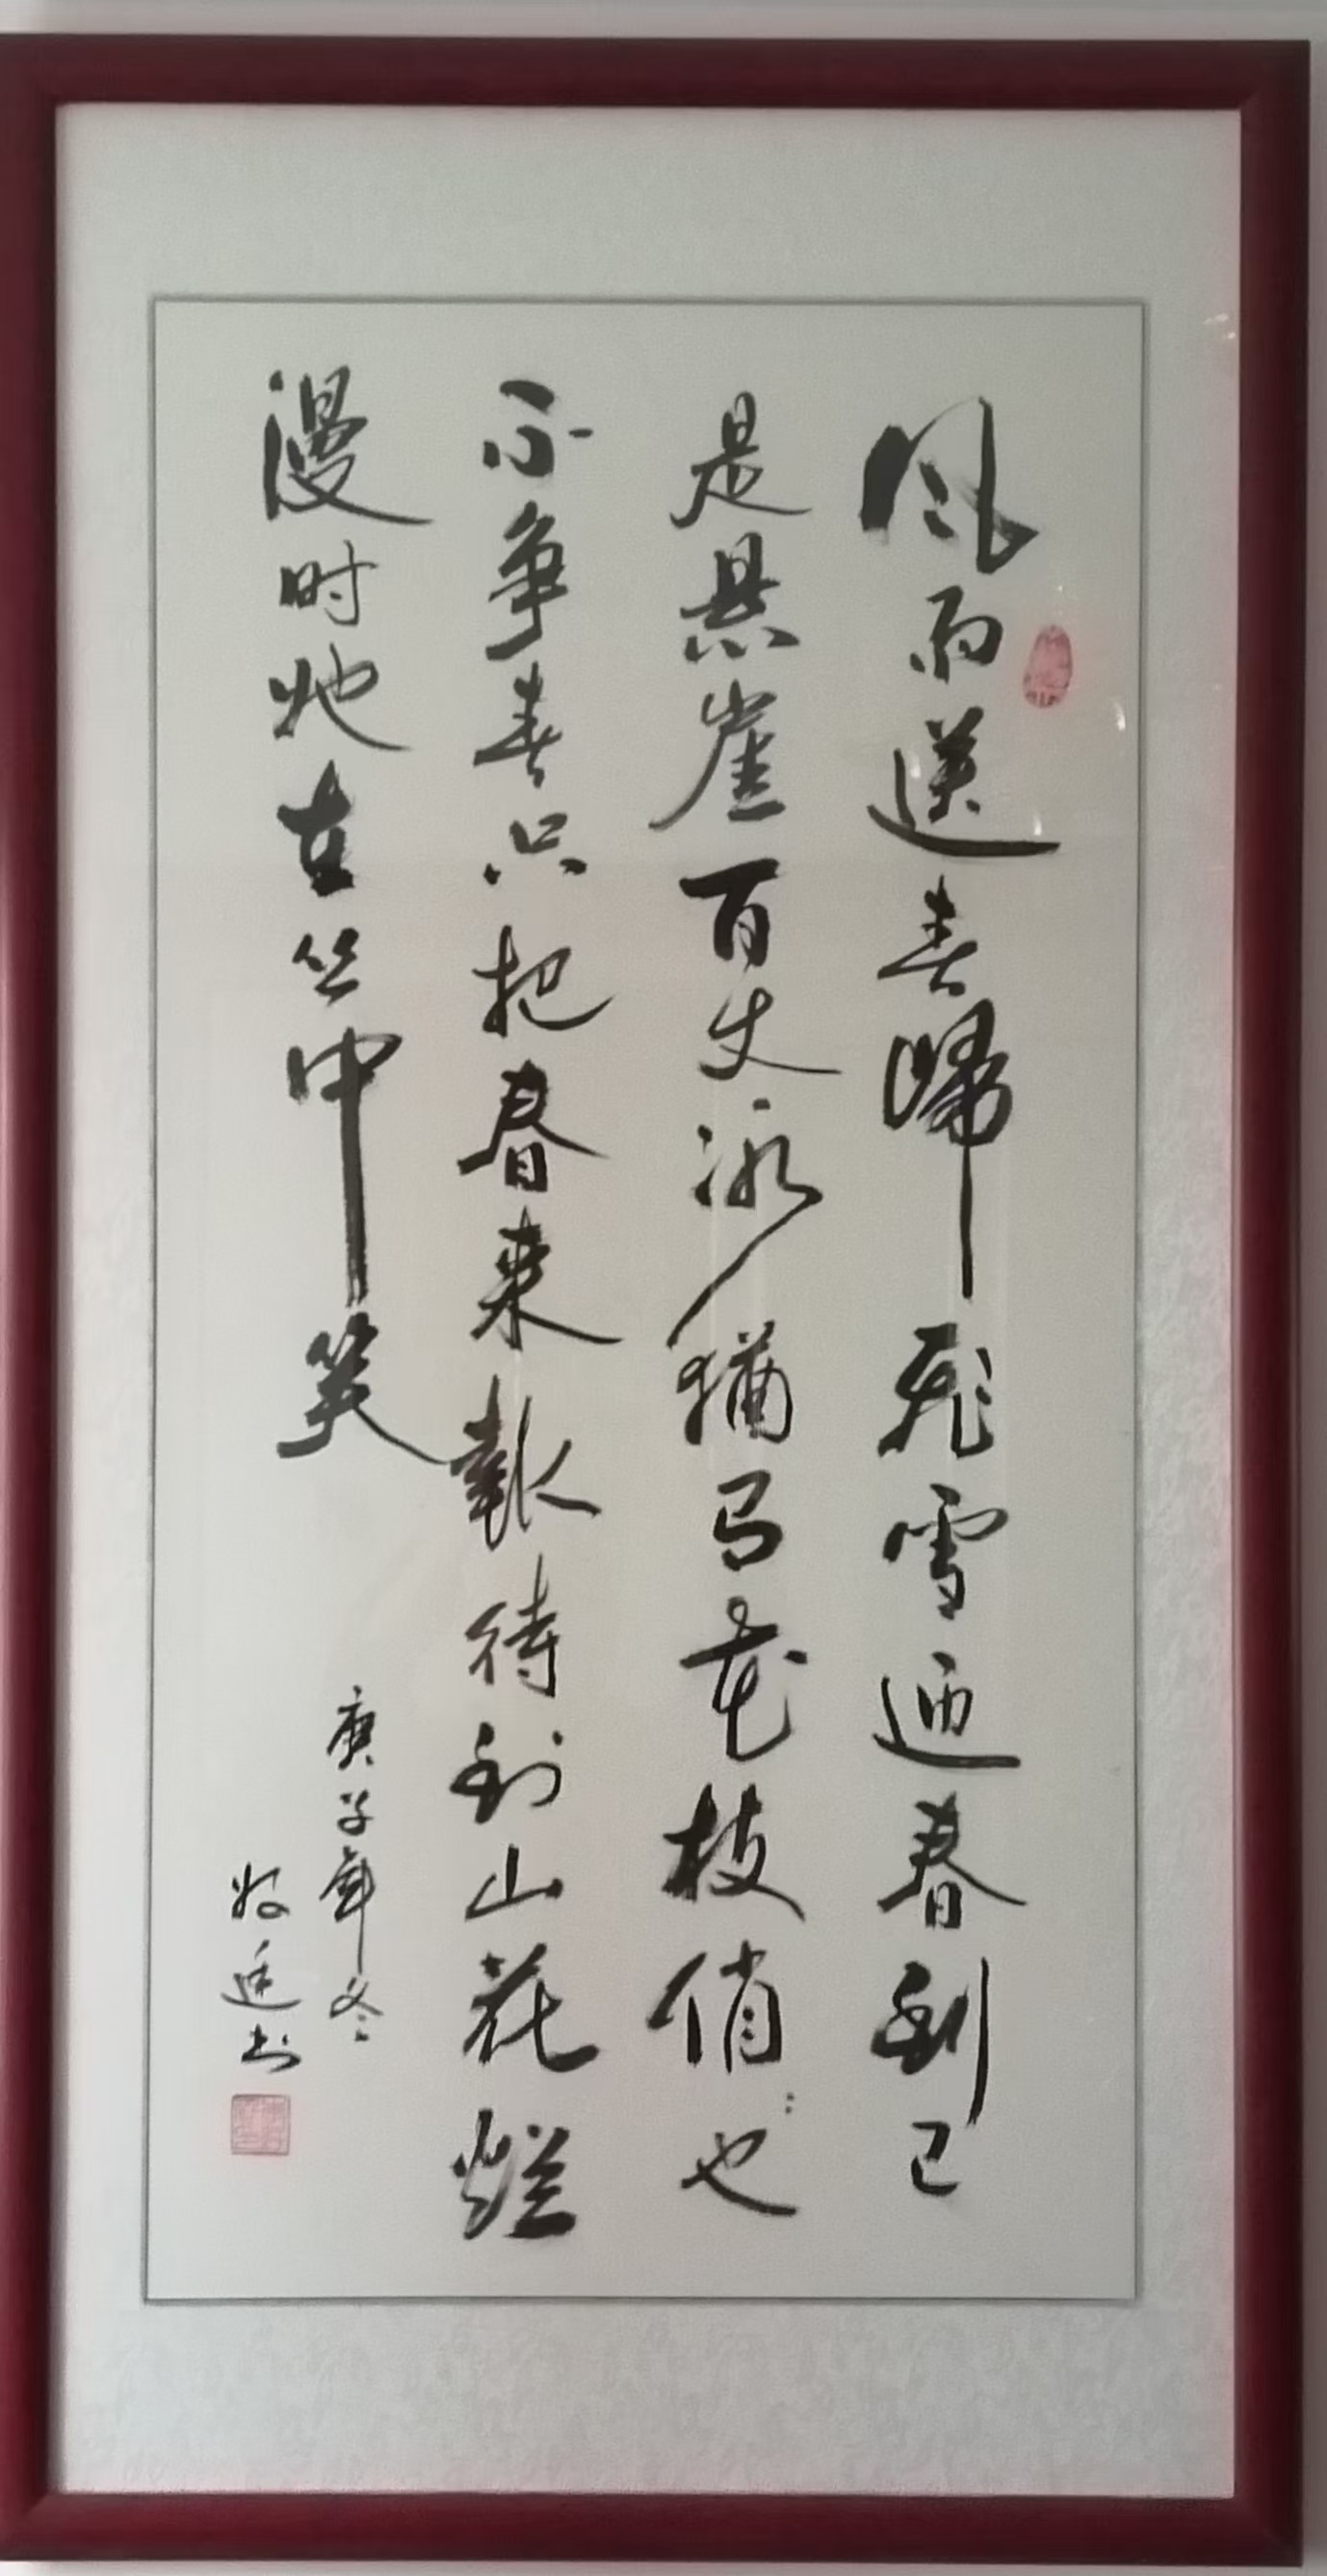 风雨送春歸飛雪迎春到已
是悬崖百丈冰猶有花枝俏也
不争春只把春来報待到山花烂
漫时她在丛中笑
庚子年冬
廷书